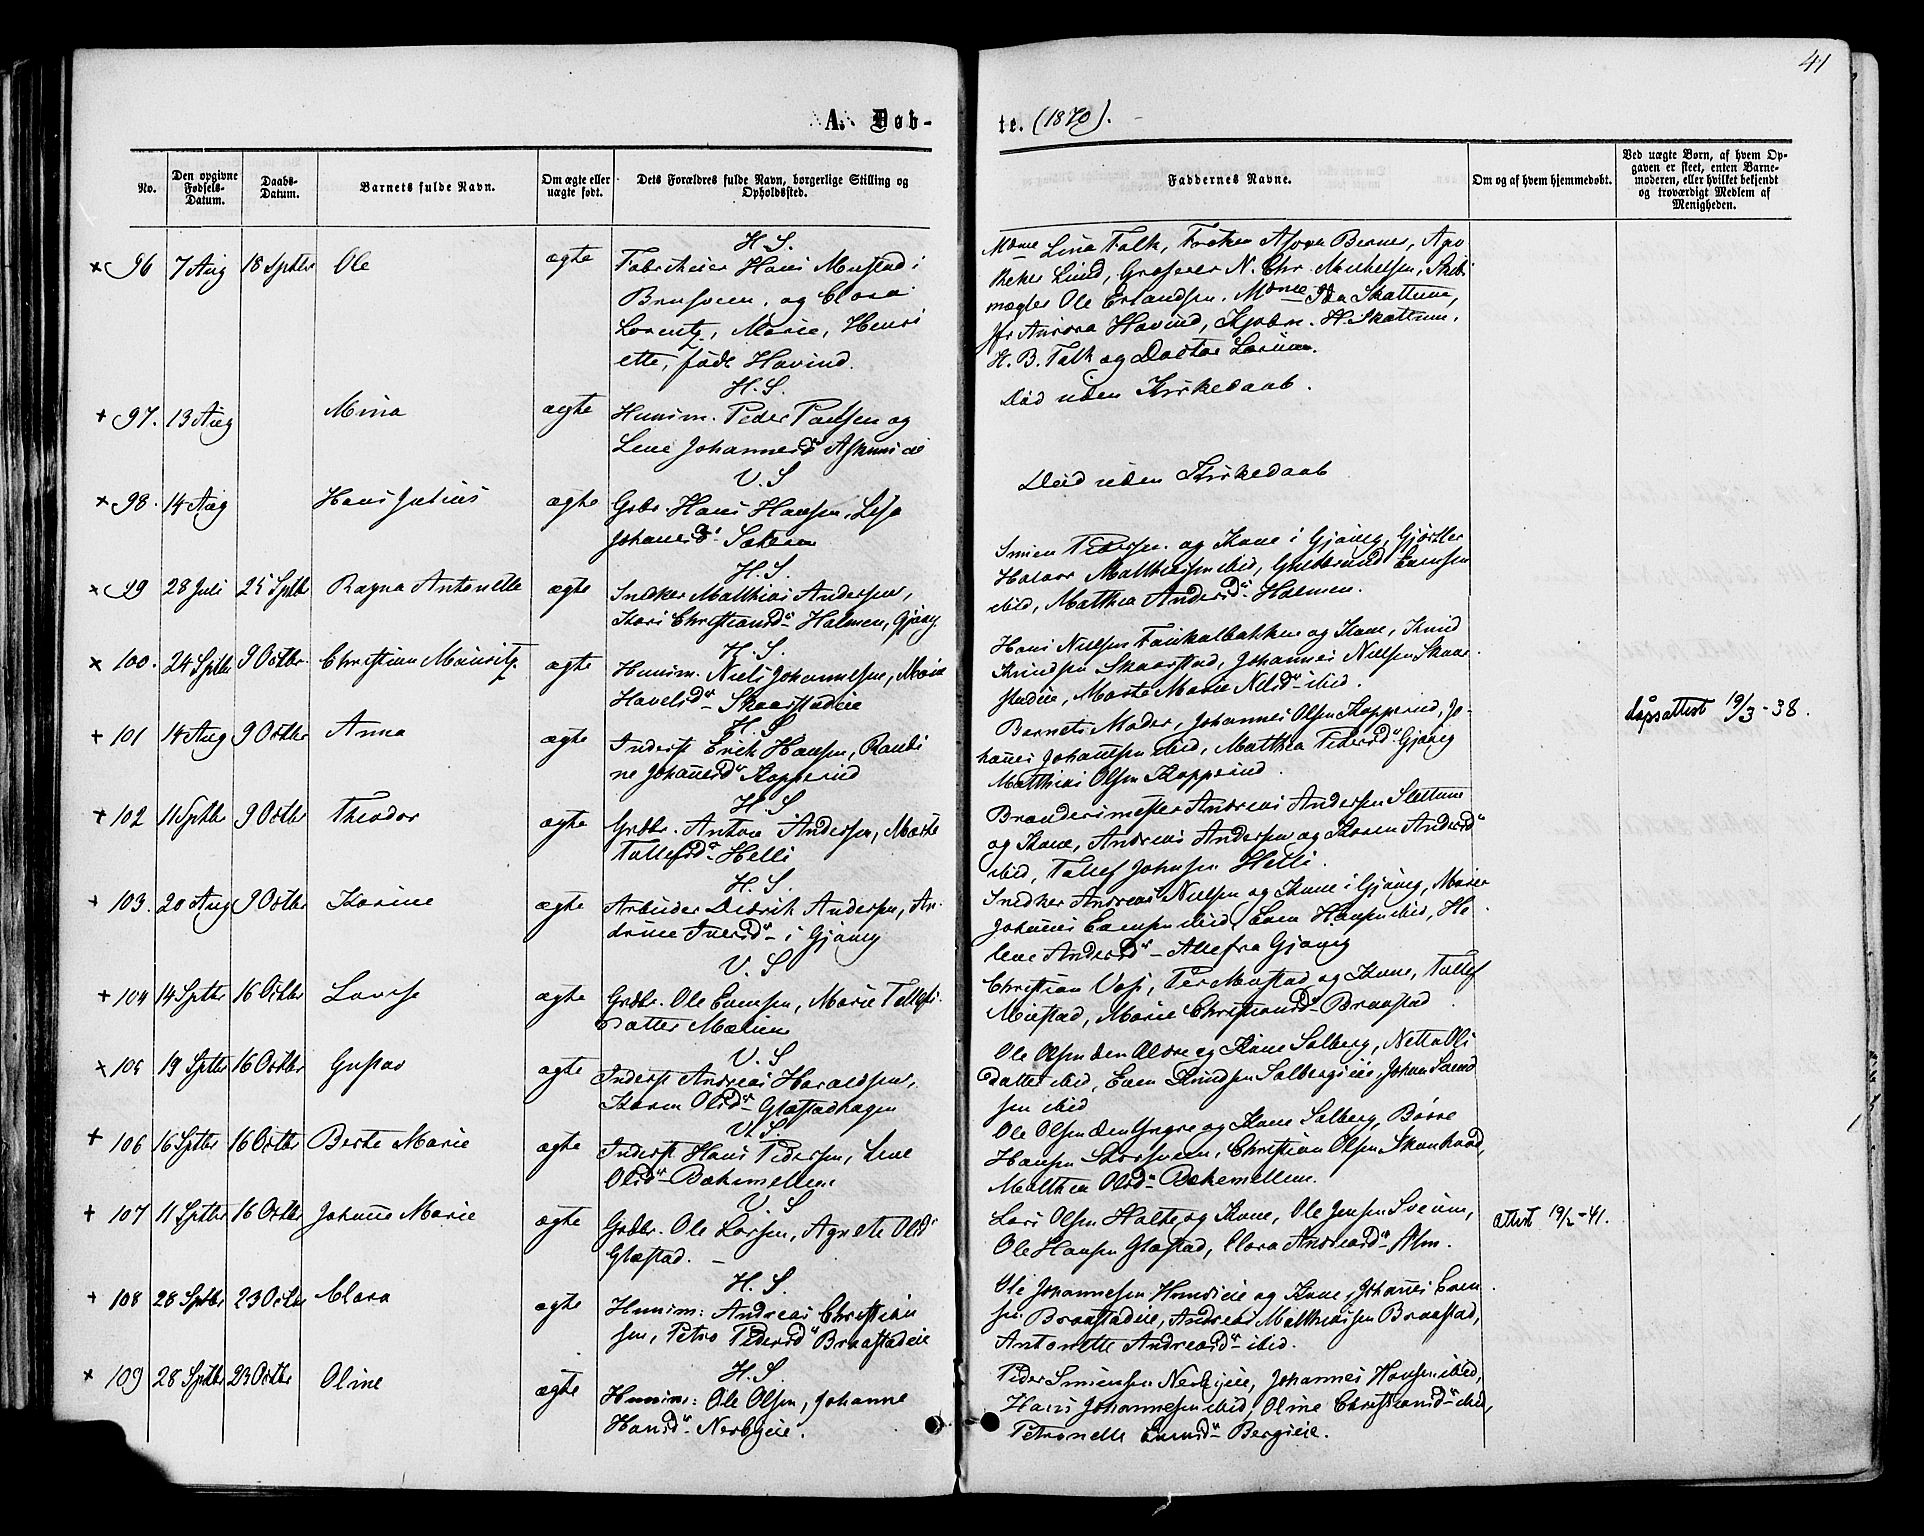 41
A. Døb-
te. (1870).
No.
Den opgivne Fødsels-Datum.
Daabs-Datum.
Barnets fulde Navn.
Om ægte eller uægte født.
Dets Forældres fulde Navn, borgerlige Stilling og Opholdssted.
Faddernes Navne.
Om og af hvem hjemmedøbt.
Ved uægte Børn, af hvem Opgaven er skeet, enten Barnemoderen, eller hvilket bekjendt og troværdigt Medlem af Menigheden.
× 96 7 Aug 18 Sptbr Ole ægte
H. S.
Fabrikeier Hans Mustad i
Brusveen, og Clara
Lorentz, Marie, Henri
ette, født Hovind.
Mdme Lina Falk, Frøken Berner, Apo
theker Lund, Grosserer N. Chr. Michelsen, Skibs
mægler Ole Erlandsen. Mdme Ida Skattum,
Jfr Aurora Hovind, Kjøbm. H. Skattum,
H. B. Falk og Doctor
+ 97. 13 Aug Mina ægte
H. S.
Huusm. Peder Paulsen og
Lene Johannesdr
Død uden Kirkedaab.
× 98. 14 Aug Hans Julius ægte
V. S
Grbr. Hans Hansen,
Johannesdr
Død uden Kirkedaab
× 99 28 Juli 25 Sptbr Ragna Antonette ægte
H. S.
Snedker Matthias Andersen,
Kari Christiansdr Holmen, Gjøvig
Simen Pedersen og Kone i Gjøvig, Gjørtler
Halvor Matthiasen ibid, Guldbrand Evensen
ibid, Matthea Andersdr Holmen.
× 100. 24 Sptbr 9 Octbr. Christian Mauritz ægte
H. S.
Huusm. Niels Johannesen, Marie
Hovelsdr Skaarstadeie
Hans Nielsen Faukalbakken og Kone, Knud
Knudsen Skaarstad, Johannes Nielsen Skaar
stadeie, Marte Marie Nilsdr ibid.
+ 101 14 Aug 9 Octbr Anna ægte
H. S
Inderst Erik Hansen, Randi
ne Johannesdr Kopperud
Barnets Moder, Johannes Olsen Kopperud, Jo-
hannes Johannsen ibid, Matthea Pedersdr Gjøvig
Matthias Olsen Kopperud.
Dåpsattest 19/3-38.
+ 102 11 Sptbr 9 Octbr Theodor ægte
H. S
Grdbr. Anton Andersen, Marte
Tollefsdr Helli
Brandersmester Andreas Andersen Slettum
og Kone, Andreas Andersen og Karen Andersdr
ibid, Tollef Johnsen Helli.
+ 103. 20 Aug 9 Octbr Karine ægte
H. S.
Arbeider Didrik Andersen, An-
drine Iversdr i Gjøvig
Snedker Andreas Nielsen og Kone i Gjøvig, Marie
Johannes Evensen ibid, Even Hansen ibid, He
lene Andersdr Alle fra Gjøvig
+ 104 14 Sptbr 16 Octbr Lovise ægte
V. S
Grdbr. Ole Evensen, Marie Tollefs
datter Mælum
Christian Per Mustad og Kone, Tollef
Mustad, Marie Christiansdr Braastad.
× 105 19 Sptbr 16 Octbr Gustav ægte
V. S
Inderst Andreas Haraldsen,
Karen Olsdr Glæstadhagen
Ole Olsen den Ældre og Kone Solberg, Netta Ols
datter ibid, Even Knudsen Solbergseie, Johan
sen ibid
+ 106 16 Sptbr 16 Octbr Berte Marie ægte
V. S.
Inderst Hans Pedersen, Lene
Olsdr Bækemellem
Ole Olsen den Yngre og Kone Solberg, Børre
Hansen Storsveen, Christian Olsen
Matthea Olsdr Bækemellem.
+ 107 11 Sptbr 16 Octbr Johanne Marie ægte
V. S
Grdbr. Ole Larsen, Agnete Olsdr
Glæstad.
Lars Olsen Holte og Kone, Ole Jensen Sveum,
Ole Hansen Glæstad, Clara Andreasdr Alm.
attest 19/2-41.
+ 108 28 Sptbr 23 Octbr Clara ægte
H. S.
Huusm: Andreas Christian
sen, Petra Pedersdr Braastadeie
Ole Johannesen Hundseie og Kone, Johannes Even
sen Braastadeie, Andreas Matthiasen Braastad,
Antonette Andreasdr ibid.
× 109 28 Sptbr 23 Octbr Oline ægte
H. S.
Huusm: Ole Olsen, Johanne
Hansdr Nerbyeie.
Peder Simensen Nerbyeie, Johannes Hansen ibid,
Hans Johannesen ibid, Oline Christiansdr ibid,
Petronelle Evensdr Bergseie.